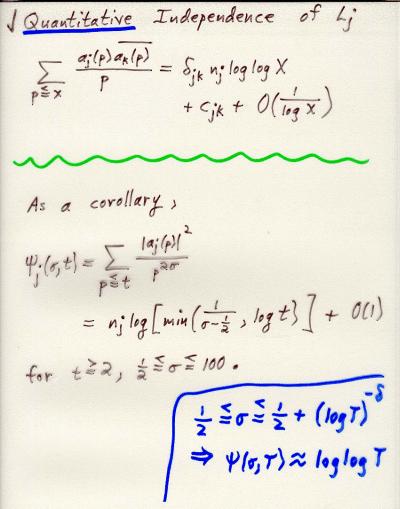 √ Quantitative Independence of Lj
∑_{p≦X} a_j(p) \overline{a_k(p)} / p = δ_{jk} n_j log log X
+ c_{jk} + O(1/log X)
As a corollary,
ψ_j(σ,t) = ∑_{p≦t} |a_j(p)|² / p^{2σ}
= n_j log[min(1/(σ-½), log t)] + O(1)
for t≧2, ½≦σ≦100.
½ ≦ σ ≦ ½ + (log T)^{-δ}
⇒ ψ(σ,T) ≈ log log T